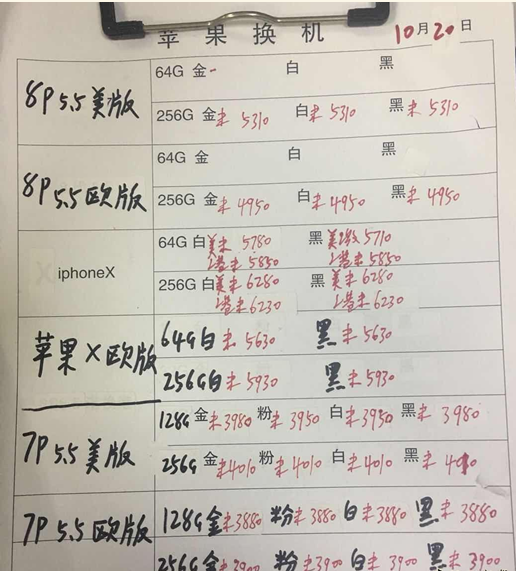 苹果换机 10月20日
8P 5.5 美版
64G 金- 白 黑
256G 金未 5310 白未 5310 黑未 5310
8P 5.5 欧版
64G 金 白 黑
256G 金未 4950 白未 4950 黑未 4950
iphoneX
64G 白美未 5780 黑美激 5710
港未 5850 港未 5850
256G 白美未 6280 黑美未 6280
港未 6230 港未 6230
苹果X欧版
64G白未 5630 黑未 5630
256G白未 5930 黑未 5930
7P 5.5 美版
128G 金未 3980 粉未 3950 白未 3950 黑未 3980
256G 金未 4010 粉未 4010 白未 4010 黑未
7P 5.5 欧版
128G 金未 3880 粉未 3880 白未 3880 黑未 3880
256G 金未 3900 粉未 3900 白未 3900 黑未 3900